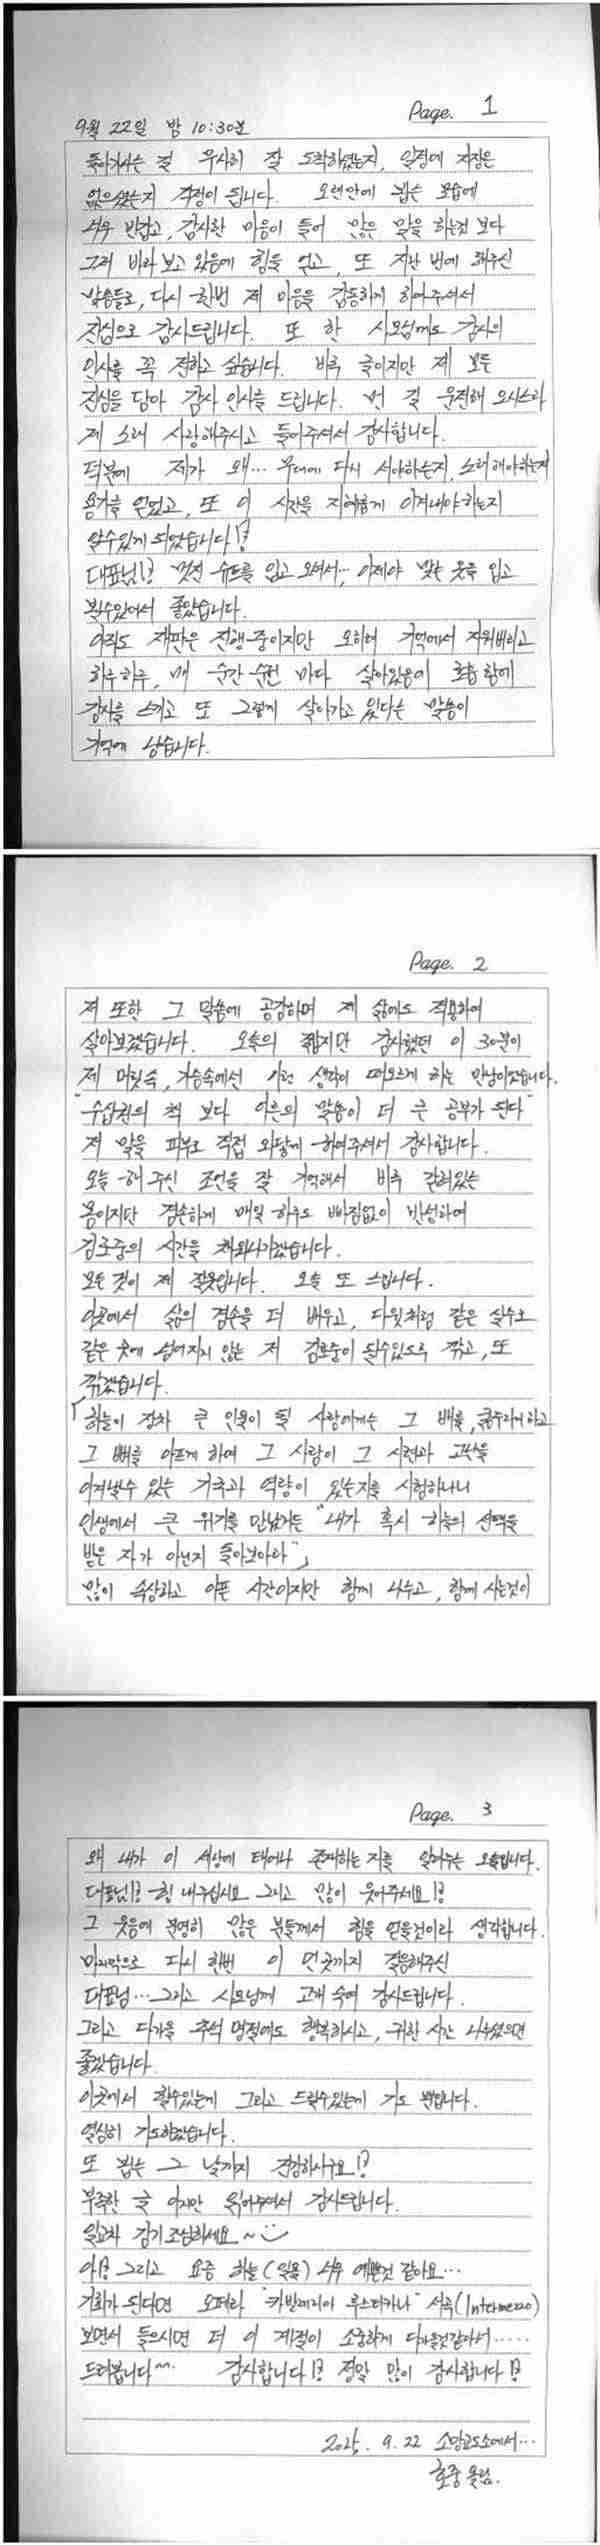 Page. 1
9월 22일 밤 10:30분
돌아가시는 길 무사히 잘 도착하셨는지, 일정에 지장은
없으셨는지 걱정이 됩니다. 오랜만에 뵙는 모습에
너무 반갑고, 감사한 마음이 들어 많은 말을 하는것 보다
그저 바라보고 있음에 힘을 얻고, 또 지난 번에 해주신
말씀들로, 다시 한번 제 마음을 감동하게 하여주셔서
진심으로 감사드립니다. 또 한 사모님께도 감사의
인사를 꼭 전하고 싶습니다. 비록 글이지만 제 모든
진심을 담아 감사 인사를 드립니다. 먼 길 운전해 오시느라
제 노래 사랑해주시고 들어주셔서 감사합니다.
덕분에 제가 왜... 무대에 다시 서야하는지, 노래해야하는지
용기를 얻었고, 또 이 시간을 지혜롭게 이겨내야하는지
알수있게 되었습니다!!
대표님!! 멋진 슈트를 입고 오셔서... 이제야 맞는 옷을 입고
뵐수있어서 좋았습니다.
아직도 재판은 진행중이지만 오히려 기억에서 지워버리고
하루하루, 매 순간순간 마다 살아있음에 호흡함에
감사를 느끼고 또 그렇게 살아가고 있다는 말씀이
기억에 남습니다.
Page. 2
저 또한 그 말씀에 공감하며 제 삶에도 적용하여
살아보겠습니다. 오늘의 짧지만 감사했던 이 30분이
제 머릿속, 가슴속에선 이런 생각이 떠오르게 하는 만남이었습니다.
"수십권의 책 보다 어른의 말씀이 더 큰 공부가 된다"
저 말을 피부로 직접 와닿게 하여주셔서 감사합니다.
오늘 해 주신 조언을 잘 기억해서 비록 갇혀있는
몸이지만 겸손하게 매일 하루도 빠짐없이 반성하며
김호중의 시간을 채워나가겠습니다.
모든 것이 제 잘못입니다. 오늘 또 느낍니다.
이곳에서 삶의 겸손을 더 배우고, 다윗처럼 같은 실수로
같은 곳에 넘어지지 않는 저 김호중이 될수있도록 깎고, 또
깎겠습니다.
「하늘이 장차 큰 인물이 될 사람에게는 그 배를, 굶주리게 하고
그 뼈를 아프게 하여 그 사람이 그 시련과 고난을
이겨낼수 있는 기국과 역량이 있는지를 시험하나니
인생에서 큰 위기를 만났거든 "내가 혹시 하늘의 선택을
받은 자가 아닌지 돌아보아라"」
많이 속상하고 아픈 시간이지만 함께 나누고, 함께 사는것이
Page. 3
왜 내가 이 세상에 태어나 존재하는 지를 알려주는 오늘입니다.
대표님!! 힘 내주십시요 그리고 많이 웃어주세요!!
그 웃음에 분명히 많은 분들께서 힘을 얻을것이라 생각합니다.
마지막으로 다시 한번 이 먼곳까지 걸음해주신
대표님... 그리고 사모님께 고개 숙여 감사드립니다.
그리고 다가올 추석 명절에도 행복하시고, 귀한 시간 나누셨으면
좋겠습니다.
이곳에서 할수있는게 그리고 드릴수있는게 기도 뿐입니다.
열심히 기도하겠습니다.
또 뵙는 그 날까지 건강하시구요!!
부족한 글 이지만 읽어주셔서 감사드립니다.
일교차 감기조심하세요~
아!! 그리고 요즘 하늘(일몰) 너무 예쁜것 같아요...
기회가 된다면 오페라 "카발레리아 루스티카나" 서곡(Intermezzo)
보면서 들으시면 더 이 계절이 소중하게 다가올것같아서.....
드려봅니다~~ 감사합니다!! 정말 많이 감사합니다!!
2025. 9. 22 소망교도소에서...
호중 올림.